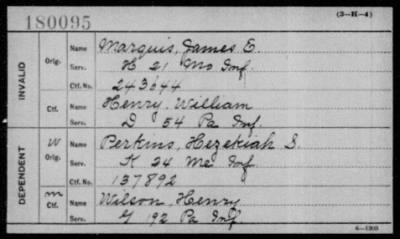 180095
(3-H-4)
INVALID
Orig. Name Marquis, James E.
Serv. H 21 Mo Inf.
Ctf. No. 243644
Ctf. Name Henry, William
Serv. D 54 Pa Inf.
DEPENDENT
W Orig. Name Perkins, Hezekiah S.
Serv. K 24 Me Inf.
Ctf. No. 137892
m Ctf. Name Wilson, Henry
Serv. G 192 Pa Inf.